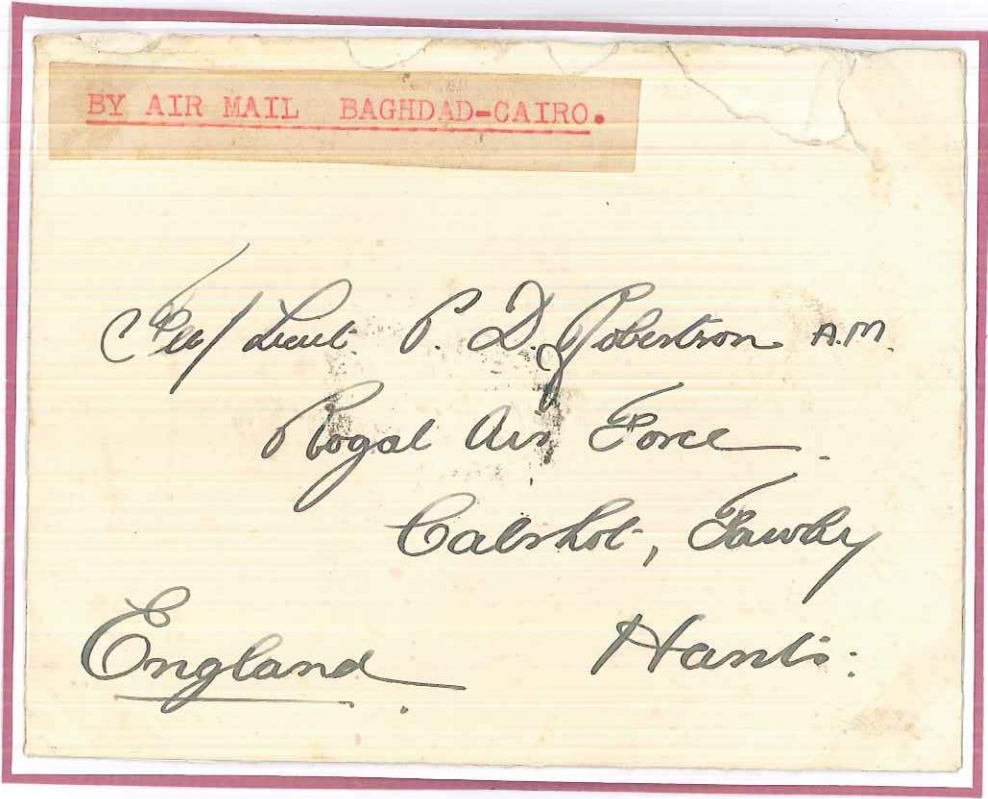 BY AIR MAIL BAGHDAD-CAIRO.
Flt/Lieut. P. D. Robertson A.M.
Royal Air Force
Calshot, Fawley
Hants:
England